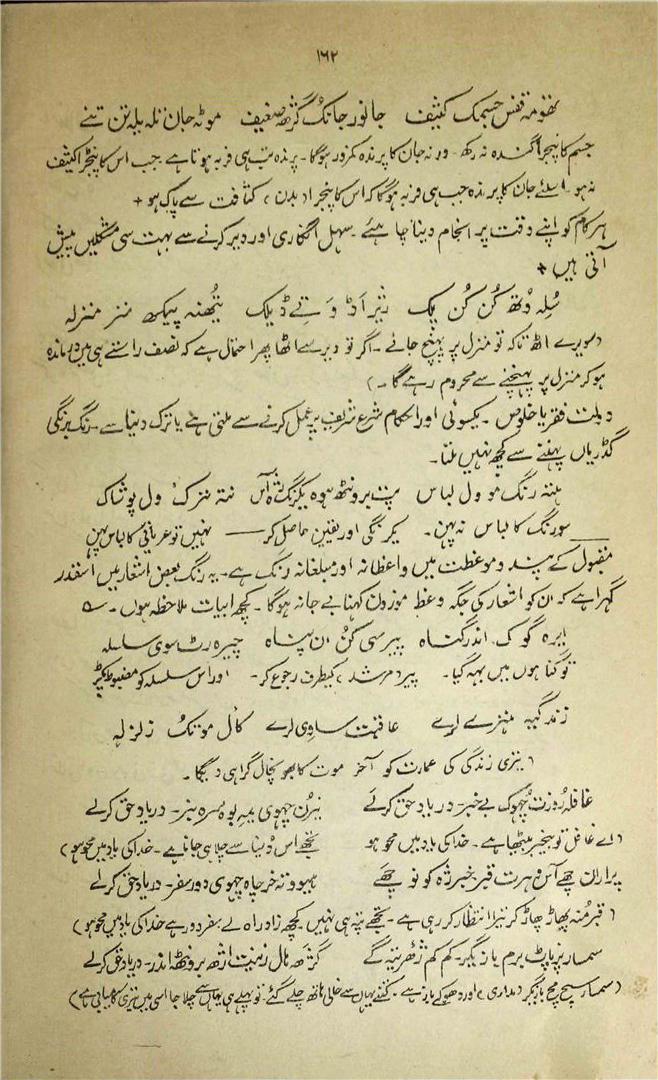 ۱۶۲
تھومہ قفس جسمک کثیف جانور جانک گژھہ ضعیف موٹہ جان تلہ یلہ تن تنے
جسم کا پنجرا گندہ نہ رکھ۔ ورنہ جان کا پرندہ کمزور ہوگا۔ پرندہ تب ہی فربہ ہوتا ہے جب اس کا پنجرا کثیف
نہ ہو۔ اسلئے جان کا پرندہ جب ہی فربہ ہوگا کہ اس کا پنجرا (بدن) کثافت سے پاک ہو +
ہر کام کو اپنے وقت پر انجام دینا چاہئے۔ سہل انگاری اور دیر کرنے سے بہت سی مشکلیں پیش
آتی ہیں +
سُلہ وُتھ کُن کُن پک تیز اڈ وَتے ڈیلک منز منزلہ
(سویرے اٹھ تاکہ تو منزل پر پہنچ جائے۔ اگر تو دیر سے اٹھا پھر احتمال ہے کہ نصف راستے ہی میں درماندہ
ہو کر منزل پر پہنچنے سے محروم رہے گا۔)
دولت فقر با خلوص۔ یکسوئی اور احکام شرع شریف پر عمل کرنے سے ملتی ہے یا ترک دنیا سے۔ رنگ برنگی
گڈریاں پہننے سے کچھ نہیں ملتا۔
ہتہ رنگ مو ول لباس یکرنگ نتہ ول پوشاک
سو رنگ کا لباس نہ پہن۔ یکرنگی اور یقین حاصل کر۔ نہیں تو عریانی کا لباس پہن
مقبول کے پند و موعظت میں واعظانہ اور مبلغانہ رنگ ہے۔ یہ رنگ بعض اشعار میں اسقدر
گہرا ہے کہ ان کو اشعار کی جگہ وعظ موزون کہنا بے جا نہ ہوگا۔ کچھ ابیات ملاحظہ ہوں۔
اندر گناہ پیر سی کُن ان پناہ رٹ سوی سلسلہ
تو گناہوں میں بہہ گیا۔ پیر (مرشد) کیطرف رجوع کر۔ اور اس سلسلہ کو مضبوط پکڑ
زندگیہ منزے لرے عاقبت ساوی لرے کال موتک زلزلہ
(تیری زندگی کی عمارت کو آخر موت کا بھونچال گرا ہی دیگا۔
غافلہ روزت چھوک بے خبر۔ در یاد حق کرلے نیرُن چھوی سبز۔ در یاد حق کرلے
(اے غافل تو بیخبر بیٹھا ہے۔ خدا کی یاد میں محو ہو تجھے اس دنیا سے چلا ہی جانا ہے۔ خدا کی یاد میں محو ہو)
پراران چھے آس قبر خبر ژہ کو نو چھے خرچاہ چھوی دور سفر۔ در یاد حق کرلے
(قبر منہ پھاڑ پھاڑ کر تیرا انتظار کر رہی ہے۔ تجھے پتہ ہی نہیں۔ کچھ زاد راہ لے سفر دور ہے خدا کی یاد میں محو ہو)
سمسار بازیگر۔ کم کم گے گژھہ مال اندر۔ در یاد حق کرلے
(سمسار سچ مچ بازیگر (مداری) اور دھوکے باز ہے۔ کتنے یہاں سے خالی ہاتھ چلے گئے۔ تو پہلے ہی یہاں سے چلا جا اسی میں تیری کامیابی ہے)